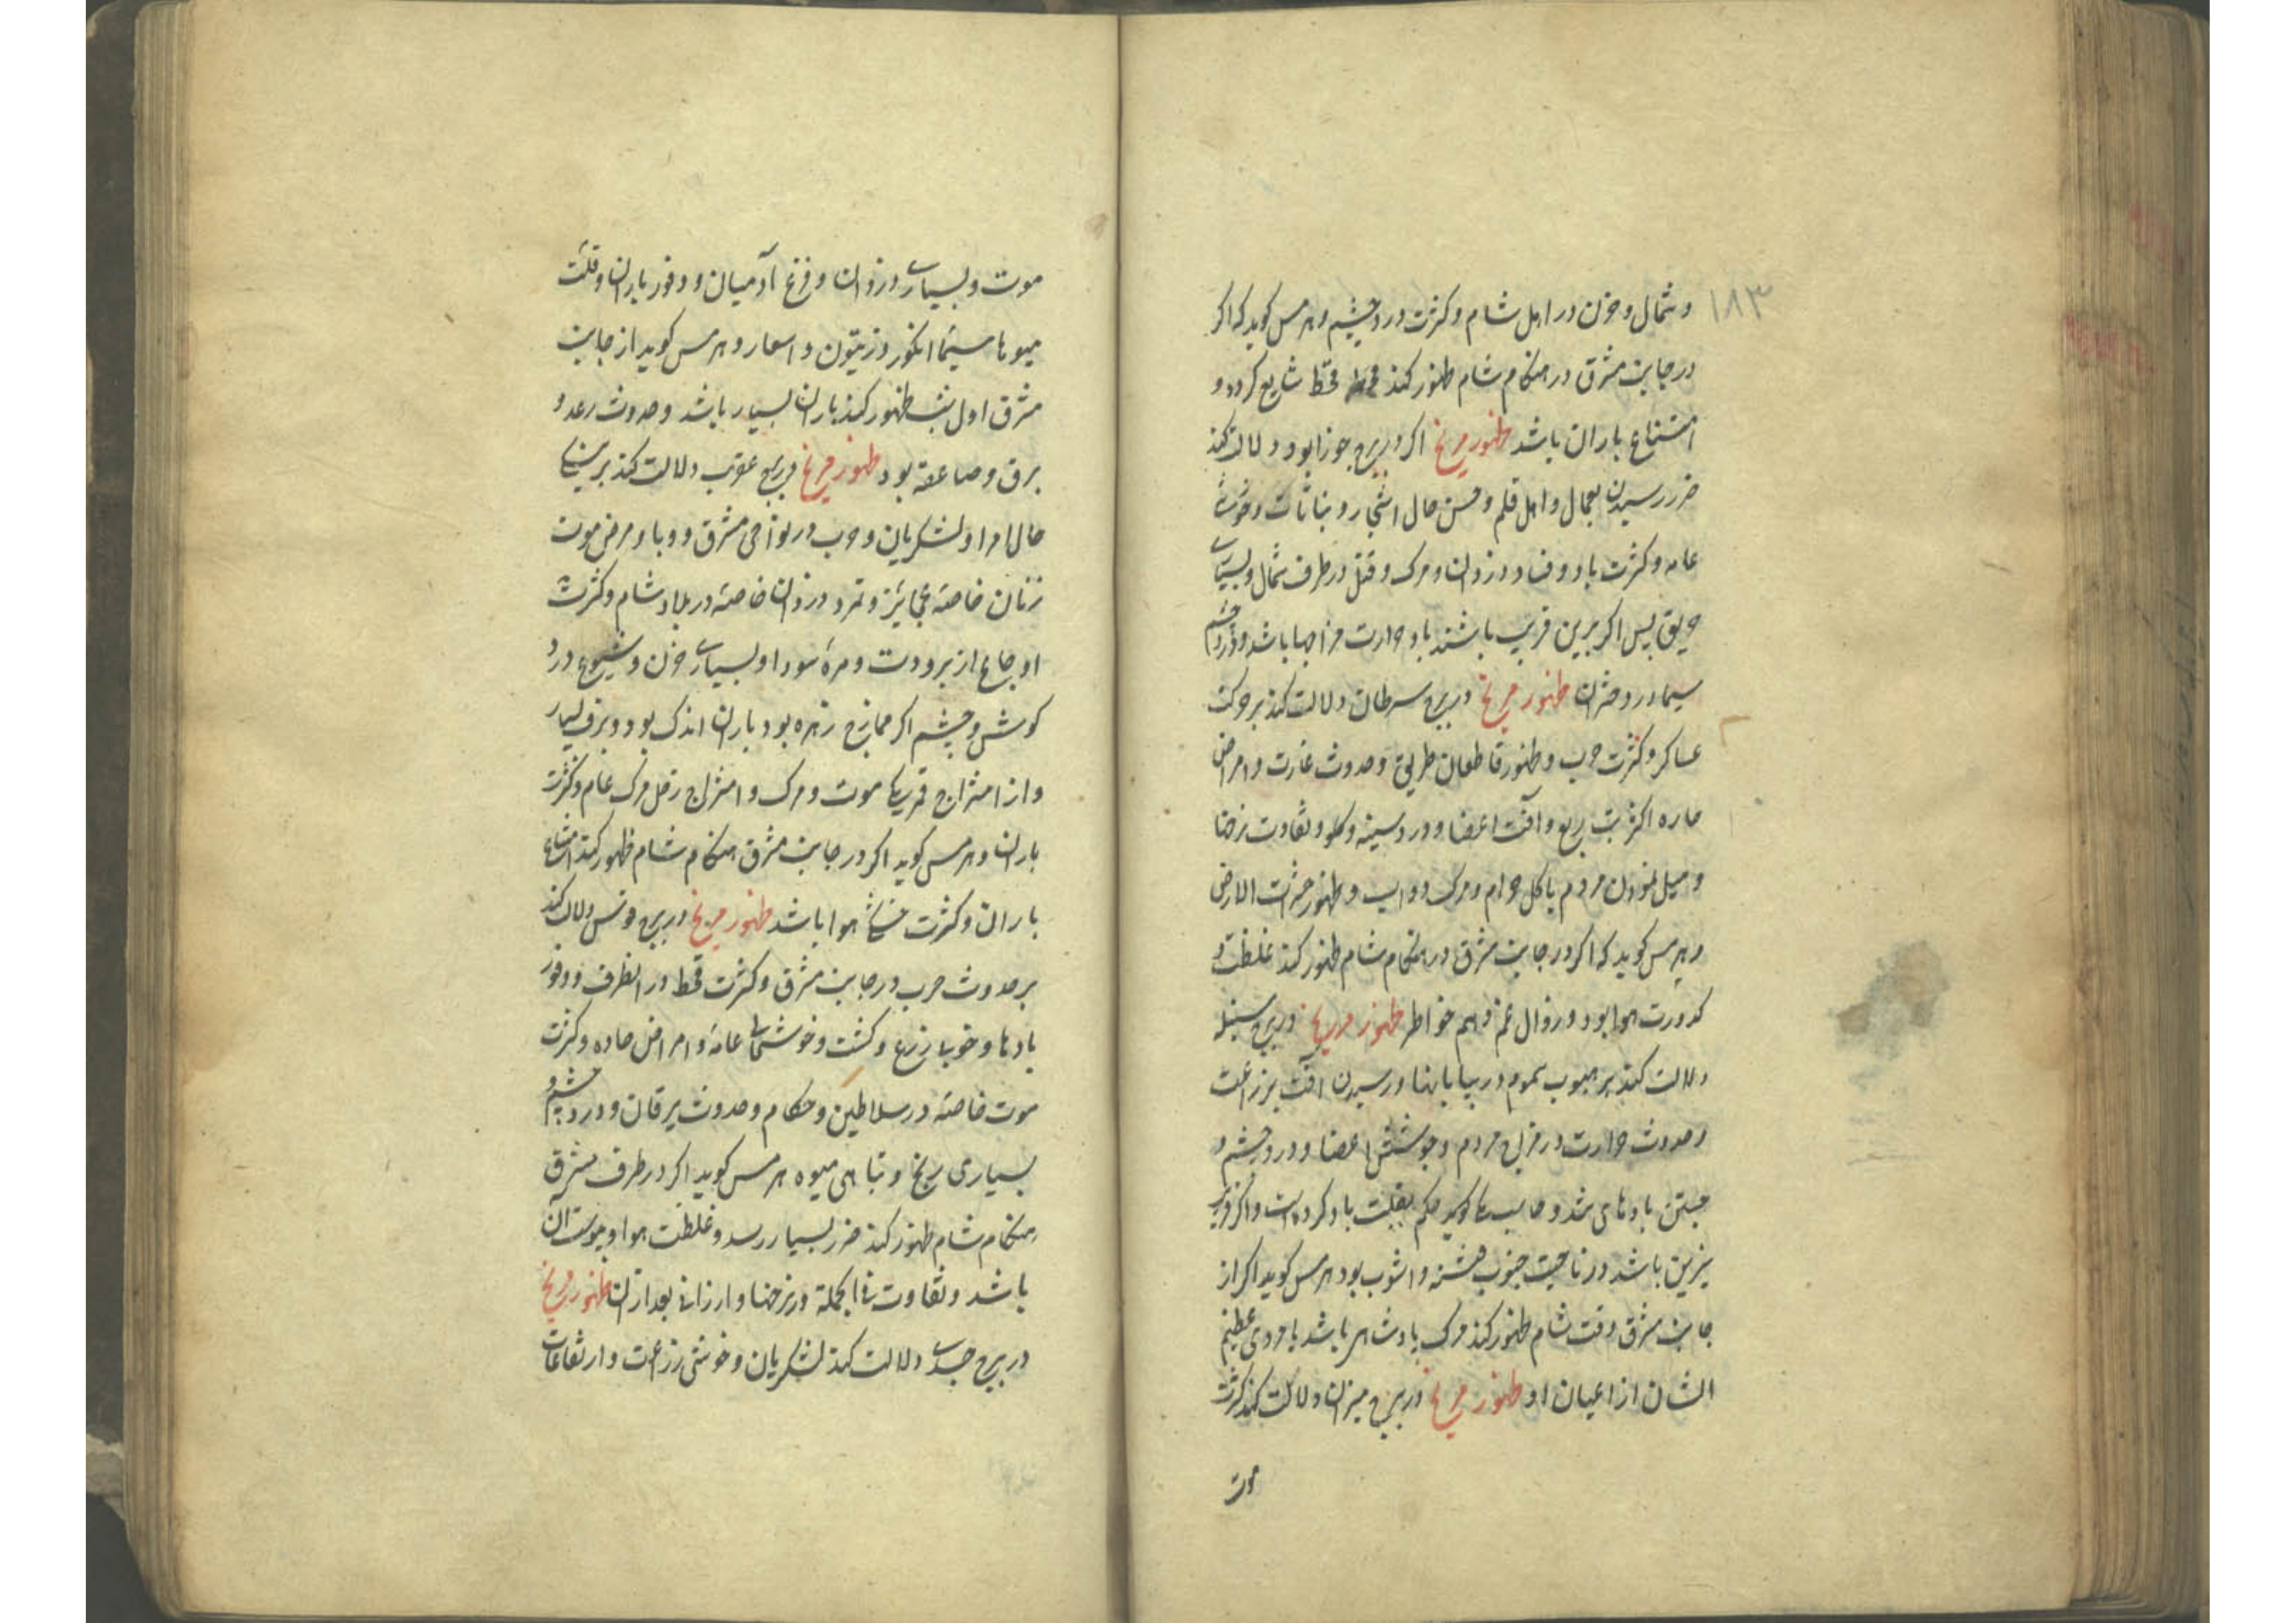 ۱۸۳
و شمال و حزن در اهل شام و کثرت درد چشم و هرمس کوید که اکر
در جانب مشرق در هنکام شام ظهور کند قحط شایع کردد و
امتناع باران باشد ظهور مریخ اکر در برج جوزا بود دلالت کند
ضرر رسیدن بعمال و اهل قلم و حسن حال اشجار و نباتات و خوشی
عامه و کثرت باد و فساد دزدان و مرک و قتل در طرف شمال و بسیاری
حریق پس اکر برین قریب باشند باد حرارت مزاجها باشد و درد چشم
سیما در دختران ظهور مریخ در برج سرطان دلالت کند بر حرکت
عساکر و کثرت حرب و ظهور قاطعان طریق و حدوث غارت و امراض
حاره اکثر تب ربع و آفت اعضا و درد سینه و کلو و تفاوت نرخها
و میل نمودن مردم باکل حرام و مرک دواب و ظهور حشرات الارض
و هرمس کوید که اکر در جانب مشرق در هنکام شام ظهور کند غلظت و
کدورت هوا بود و زوال غم و هم خواطر ظهور مریخ در برج سنبله
دلالت کند بر هبوب سموم در بیابانها و رسیدن آفت بزراعت
و حدوث حرارت در مزاج مردم و جوشش اعضا و درد چشم و
جستن بادهای تند و صاحب کوید حکم بقلت باد کرده است و اکر قریب
نیرین باشد در ناحیت جنوب فتنه و آشوب بود هرمس کوید اکر از
جانب مشرق وقت شام ظهور کند مرک پادشاهی باشد یا مردی عظیم
الشان از اعیان او ظهور مریخ در برج میزان دلالت کند کثرت
موت
موت و بسیاری دزدان و فزع آدمیان و وفور باران و قلت
میوها سیما انکور و زیتون و اسعار و هرمس کوید از جانب
مشرق اول شب ظهور کند باران بسیار باشد و حدوث رعد و
برق و صاعقه بود ظهور مریخ در برج عقرب دلالت کند بر
حال امرا و لشکریان و حرب در نواحی مشرق و وبا و مرض موت
زنان خاصه عجائز و تمرد دزدان خاصه در بلاد شام و کثرت
اوجاع از برودت و مره سودا و بسیاری حزن و شیوع درد
کوش و چشم اکر ممازج زهره بود باران اندک بود و برف بسیار
و از امتزاج قمر موت و مرک و امتزاج زحل مرک عام و کثرت
باران و هرمس کوید اکر در جانب مشرق هنکام شام ظهور کند امتناع
باران و کثرت خشکی هوا باشد ظهور مریخ در برج قوس دلالت کند
بر حدوث حرب در جانب مشرق و کثرت قحط در انطرف و وفور
بادها و خوبی زرع و کشت و خوشحالی عامه و امراض حاده و کثرت
موت خاصه در سلاطین و حکام و حدوث یرقان و درد چشم و
بسیاری ریخ و تباهی میوه هرمس کوید اکر در طرف مشرق
هنکام شام ظهور کند ضرر بسیار رسد و غلظت هوا و یبوست آن
باشد و تفاوت فی الجمله در نرخها و ارزانی بعد از ان ظهور مریخ
در برج جدی دلالت کند لشکریان و خوشی زراعت و ارتفاعات